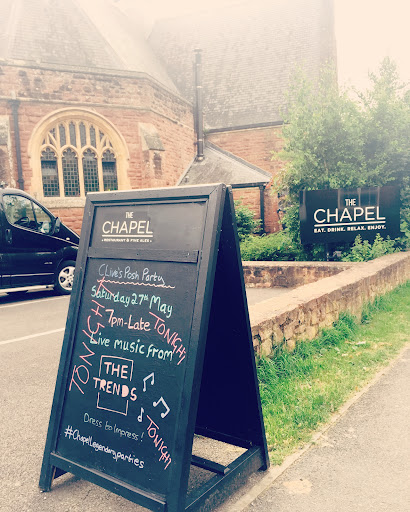 THE
CHAPEL
RESTAURANT & FINE ALES
Clive's Posh Party
Saturday 27th May
7pm-Late
TONIGHT
TONIGHT
Live music from
THE
TRENDS
TONIGHT
Dress to Impress!
#ChapelLegendaryparties
THE
CHAPEL
EAT. DRINK. RELAX. ENJOY.